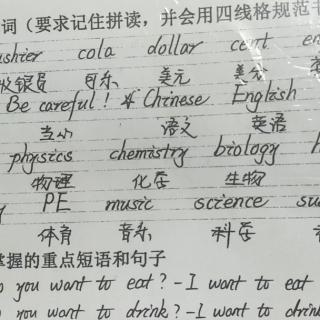 词（要求记住拼读，并会用四线格规范书
cashier cola dollar cent
收银员 可乐 美元 美分
Be careful! * Chinese English
当心 语文 英语
physics chemistry biology
物理 化学 生物
PE music science
体育 音乐 科学
掌握的重点短语和句子
you want to eat? - I want to eat
you want to drink? - I want to drink